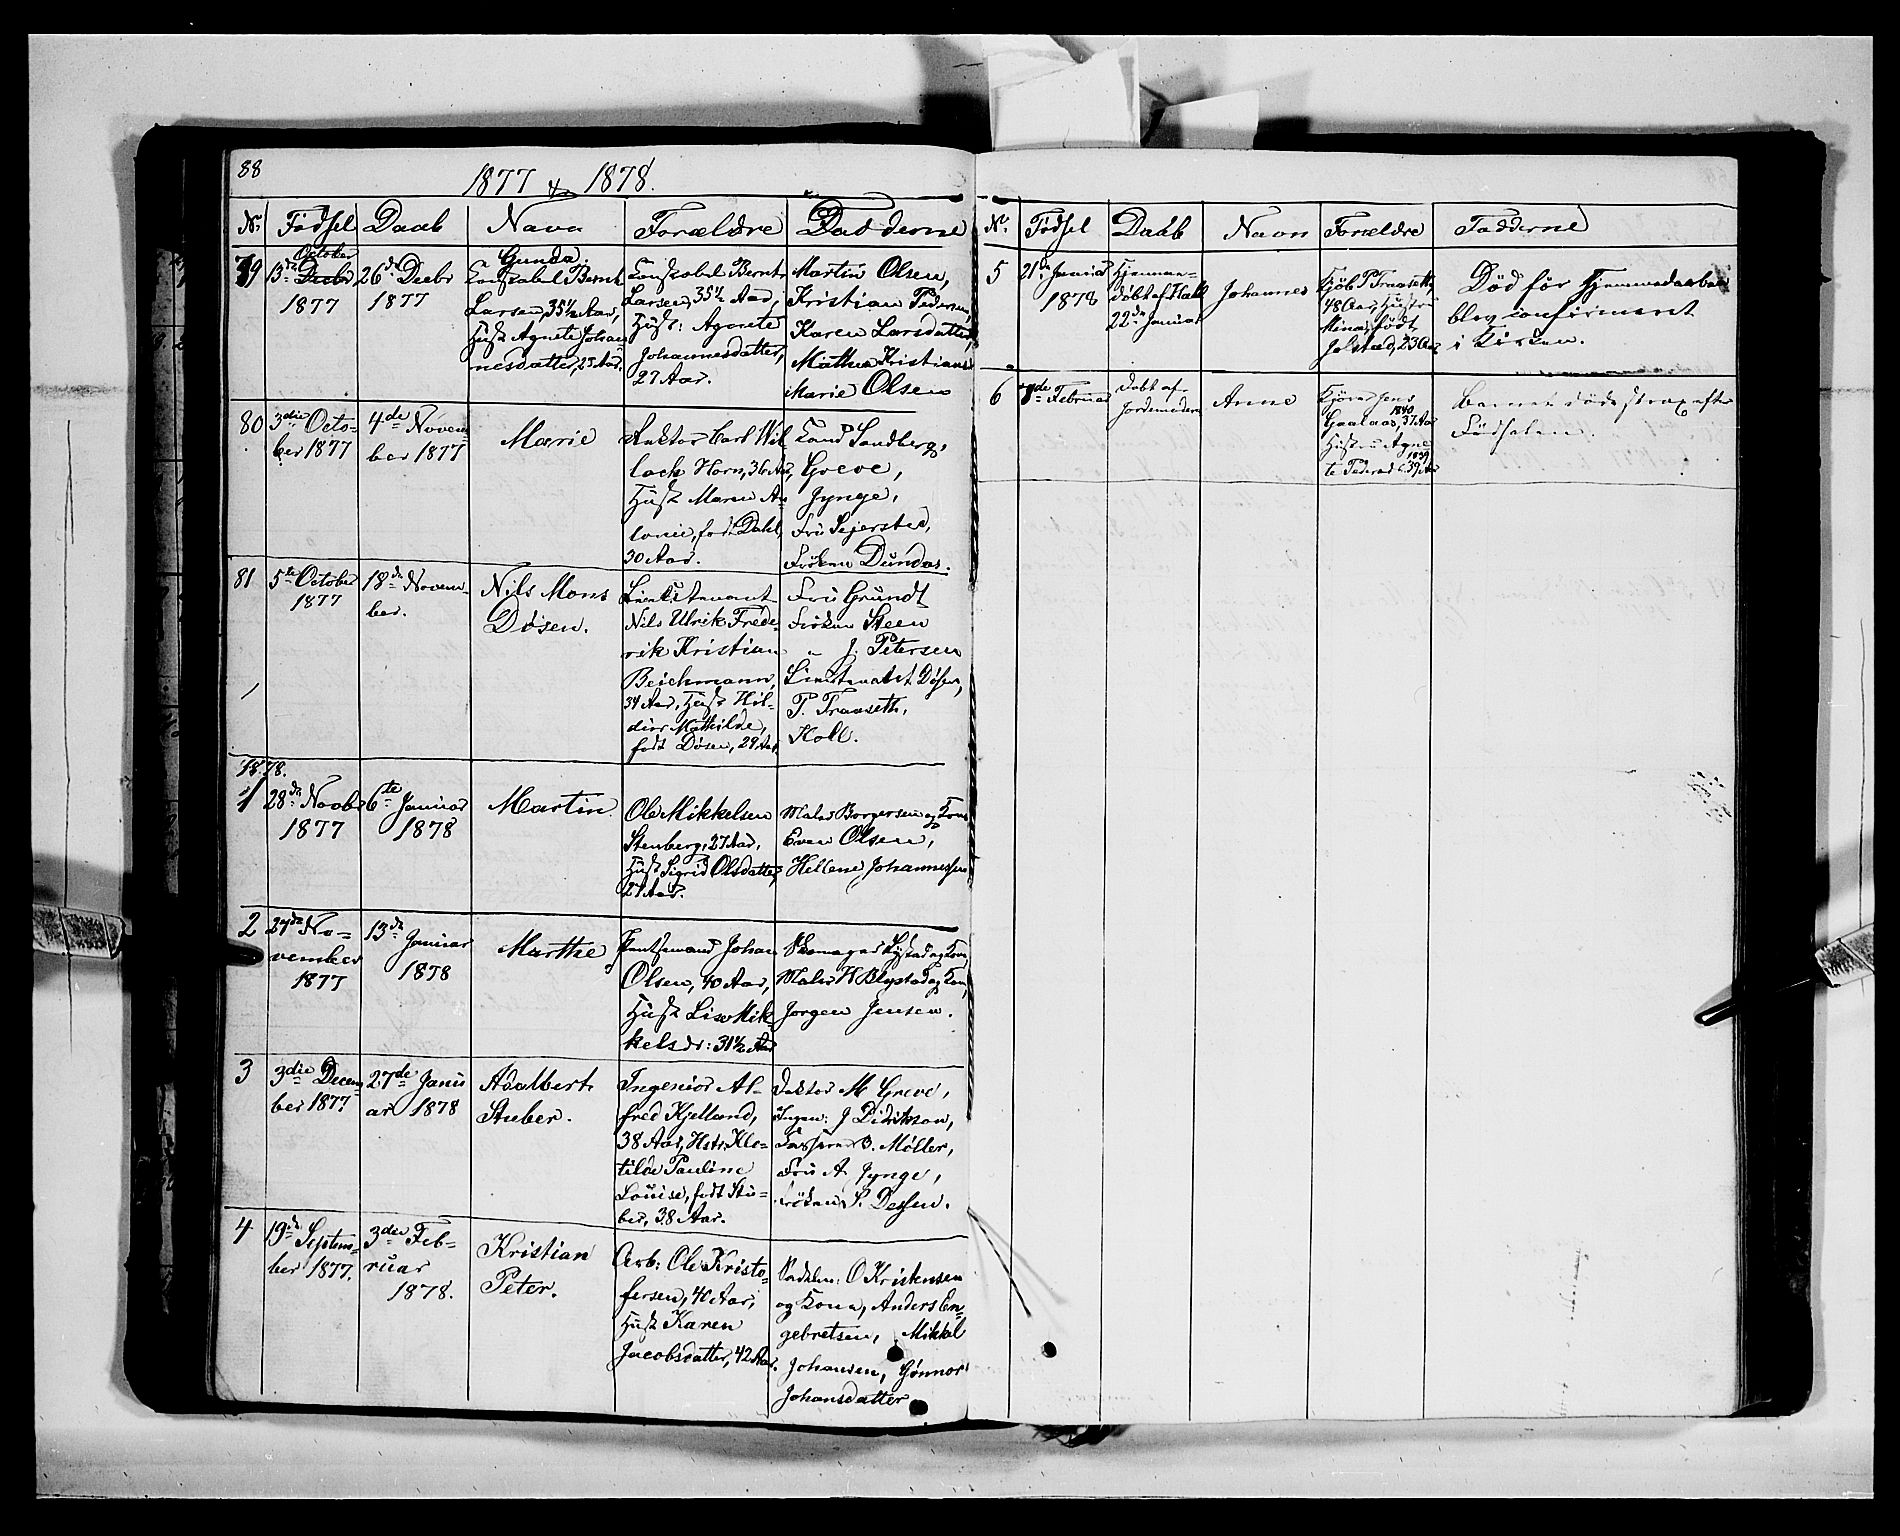 88
1877 & 1878.
Nr. Fødsel Daab Navn Forældre Fadderne
79
October
13de Decbr
1877
26de Decbr
1877
Gunda
Konstabel Bernt
Larsen, 35½ Aar,
Hust. Agnete Johan
nesdatter, 25 Aar.
Konstabel Bernt
Larsen, 35½ Aar,
Hust: Agnete
Johannesdatter,
27 Aar.
Martin Olsen,
Kristian Pedersen,
Karen Larsdatter,
Mathea Kristians
Marie Olsen
80
3die Octo-
ber 1877
4de Novem
ber 1877
Marie
Carl Wil
Horn, 36 Aar,
Hust Maren
født Dahl,
30 Aar.
Sandberg,
Greve,
Jynge,
Fru Sejersted,
Frøken Dundas.
81
5te October
1877
18de Novem-
ber.
Nils Mons
Døsen.
Nils Ulrik Frede-
rik Kristian
Beichmann,
34 Aar, Hust Hil-
Mathilde,
født Døsen, 29 Aar.
Fru Grundt
Frøken Steen
„ J. Petersen
Lieutenant Døsen,
P. Fraaseth,
Holl.
1878.
1
28de Novbr
1877
6te Januar
1878
Martin
Ole Mikkelsen
Stenberg, 27 Aar,
Hust Sigrid Olsdatter,
Maler Borgersen og Kone
Even Olsen,
Hellene Johannessen
2
27de No-
vember
1877
13de Januar
1878
Marthe
Johan
Olsen, 40 Aar,
Hust Lise Mik-
kelsdr: 31½ Aar
og Kone,
Maler H Blystad og Kone,
Jørgen Jensen.
3
3die Decem
ber 1877
27de Janu
ar 1878
Adalbert
Stuber.
Ingeniør Al-
fred Kjelland,
38 Aar, Hstr. Klo-
tilde Pauline
Louise, født Stu-
ber, 38 Aar.
Doktor M Greve,
Ingen: J Didrikson,
B. Møller,
Fru A Jynge,
Frøken S. Dessen.
4
19de Septem-
ber 1877.
3die Feb-
ruar
1878.
Kristian
Peter.
Arb: Ole Kristo-
fersen, 40 Aar,
Hust Karen
Jacobsdatter, 42 Aar.
O Kristensen
og Kone, Anders En-
gebretsen, Mikkel
Johansen, Gunnor
Johansdatter
Nr. Fødsel Daab Navn Forældre Fadderne
5
21de Januar
1878
Hjemme-
døbt af Hall
22de Januar
Johannes
Kjøb P Fraaseth,
48 Aar, Hustru
Mina, født
Jolstad, 23 Aar
Død før Hjemmedaaben
blev confirmeret
i Kirken.
6
7de Februar
døbt af
Jordemoder
Anne
Jens
1840
Gaalaas, 37 Aar
Hustru Agne
1839
te 39 Aar
Barnet døde strax efter
Fødselen.